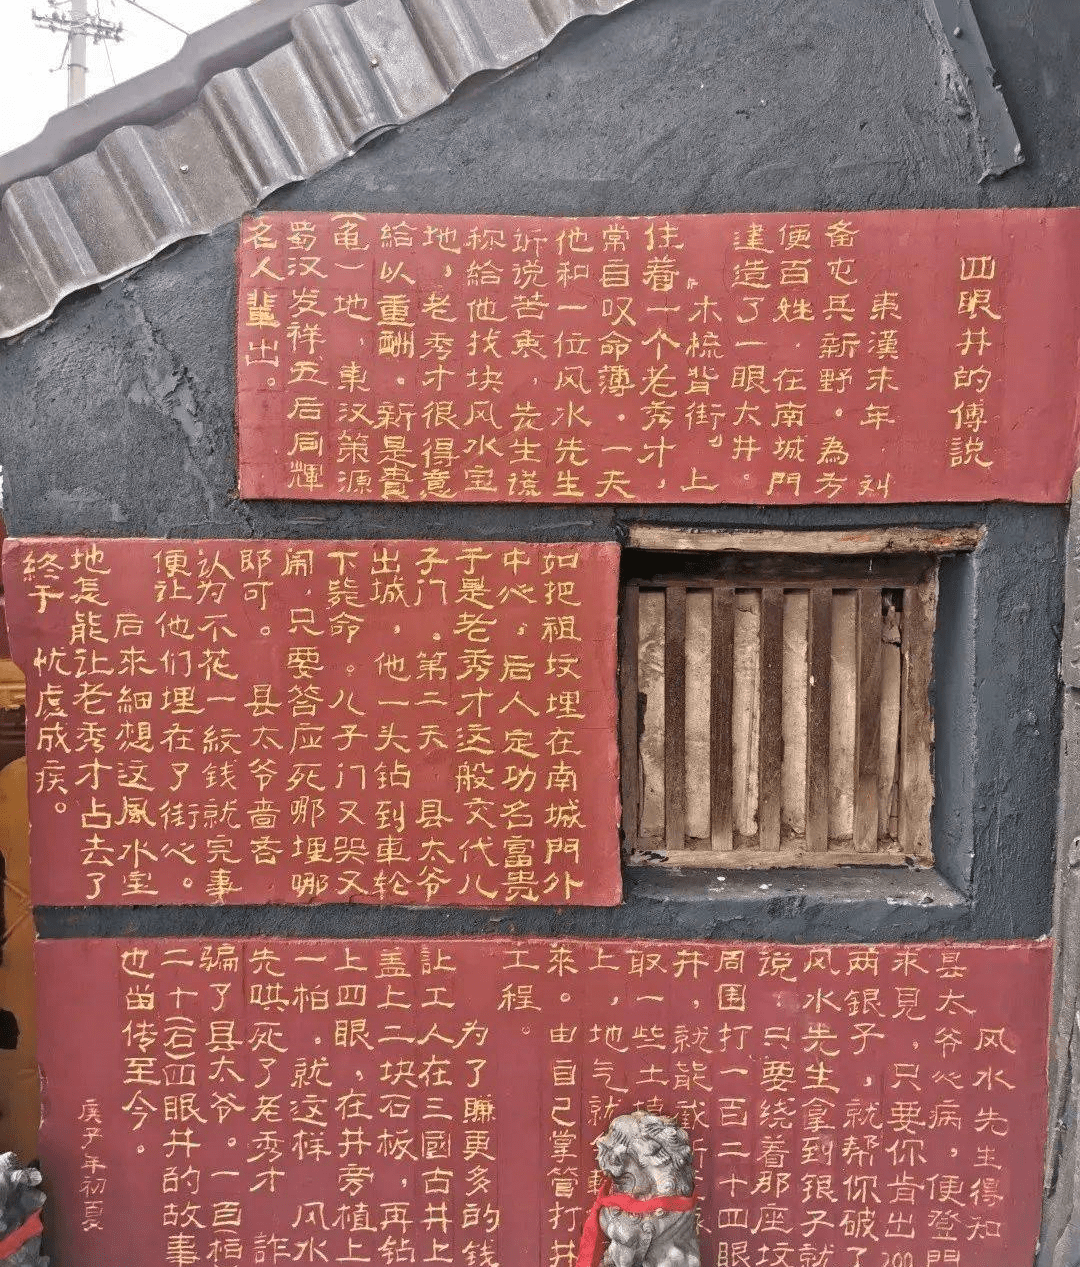 四眼井的傅說
東漢末年,刘
备屯兵新野。為方
便百姓.在南城門
建造了一眼大井。
"木梳背街"上
住着一个老秀才,
常自叹命薄.一天
他和一位风水先生
诉说苦衷,先生谎
称给他找块风水宝
地,老秀才很得意
给以重酬。新是貴
(龟)地,東汉策源
蜀汉发祥五后同輝
名人輩出。
如把祖坟埋在南城門外
中心,后人定功名富贵
于是老秀才这般交代儿
子门.第二天 县太爷
出城,他一头钻到車轮
下毙命。儿子门又哭又
闹,只要答应死哪埋哪
即可。县太爷啬吝
认为不花一纹钱就完事
便让他们埋在了街心。
后来細想这風水宝
地怎能让老秀才占去了
終于忧虑成疾。
风水先生得知
县太爷心病,便登門
求見,只要你肯出200
两銀子,就帮你破了
风水先生拿到銀子就
說:只要绕着那座坟
周围打一百二十四眼
井,就能截断
取一些土
上,地气就
来。由自己掌管打井
工程。
为了赚更多的钱
让工人在三國古井上
盖上二块石板,再钻
上四眼,在井旁植上
一柏。就这样 风水
先哄死了老秀才 詐
骗了县太爷。一百柏
二十(石)四眼井的故事
也留传至今。
庚子年初夏